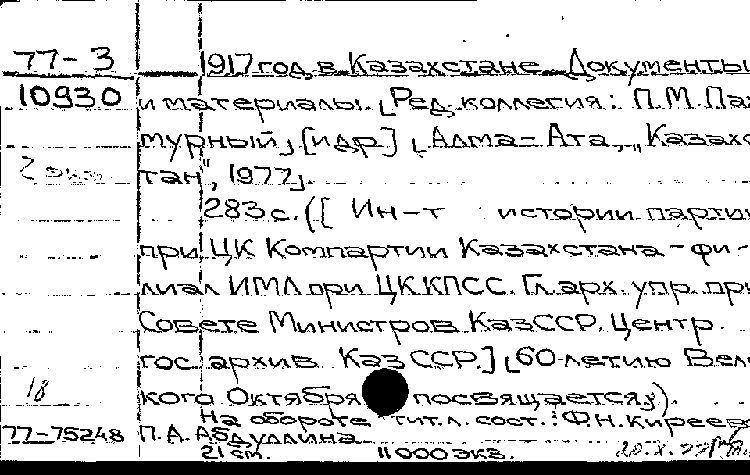 77-3 1917 год в Казахстане. Документы
10930 и материалы. [Ред. коллегия: П.М. Пах
мурный] [и др] [Алма-Ата, „Казахс
2 экз. тан", 1977].
283 с. ([Ин-т истории партии
при ЦК Компартии Казахстана - фи-
лиал ИМЛ при ЦК КПСС. Гл. арх. упр. при
Совете Министров КазССР. Центр.
гос архив КазССР.] [60-летию Вел
18 кого Октября посвящается]).
На обороте тит. л. сост.: Ф.Н. Киреев
77-75248 П.А. Абдуллина
21 см. 11000 экз.